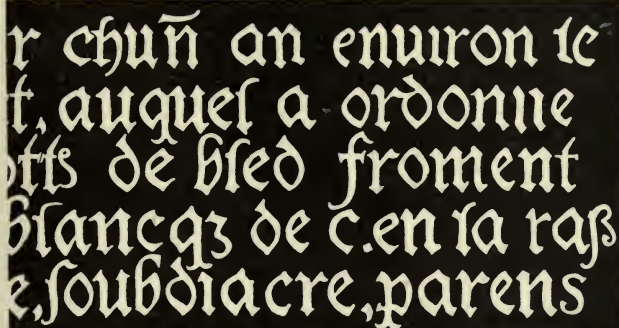 r chūn an enuiron le
t, auquel a ordonne
otts de bled froment
blancqz de c.en la raſß
e,ſoubdiacre,ꝑarens